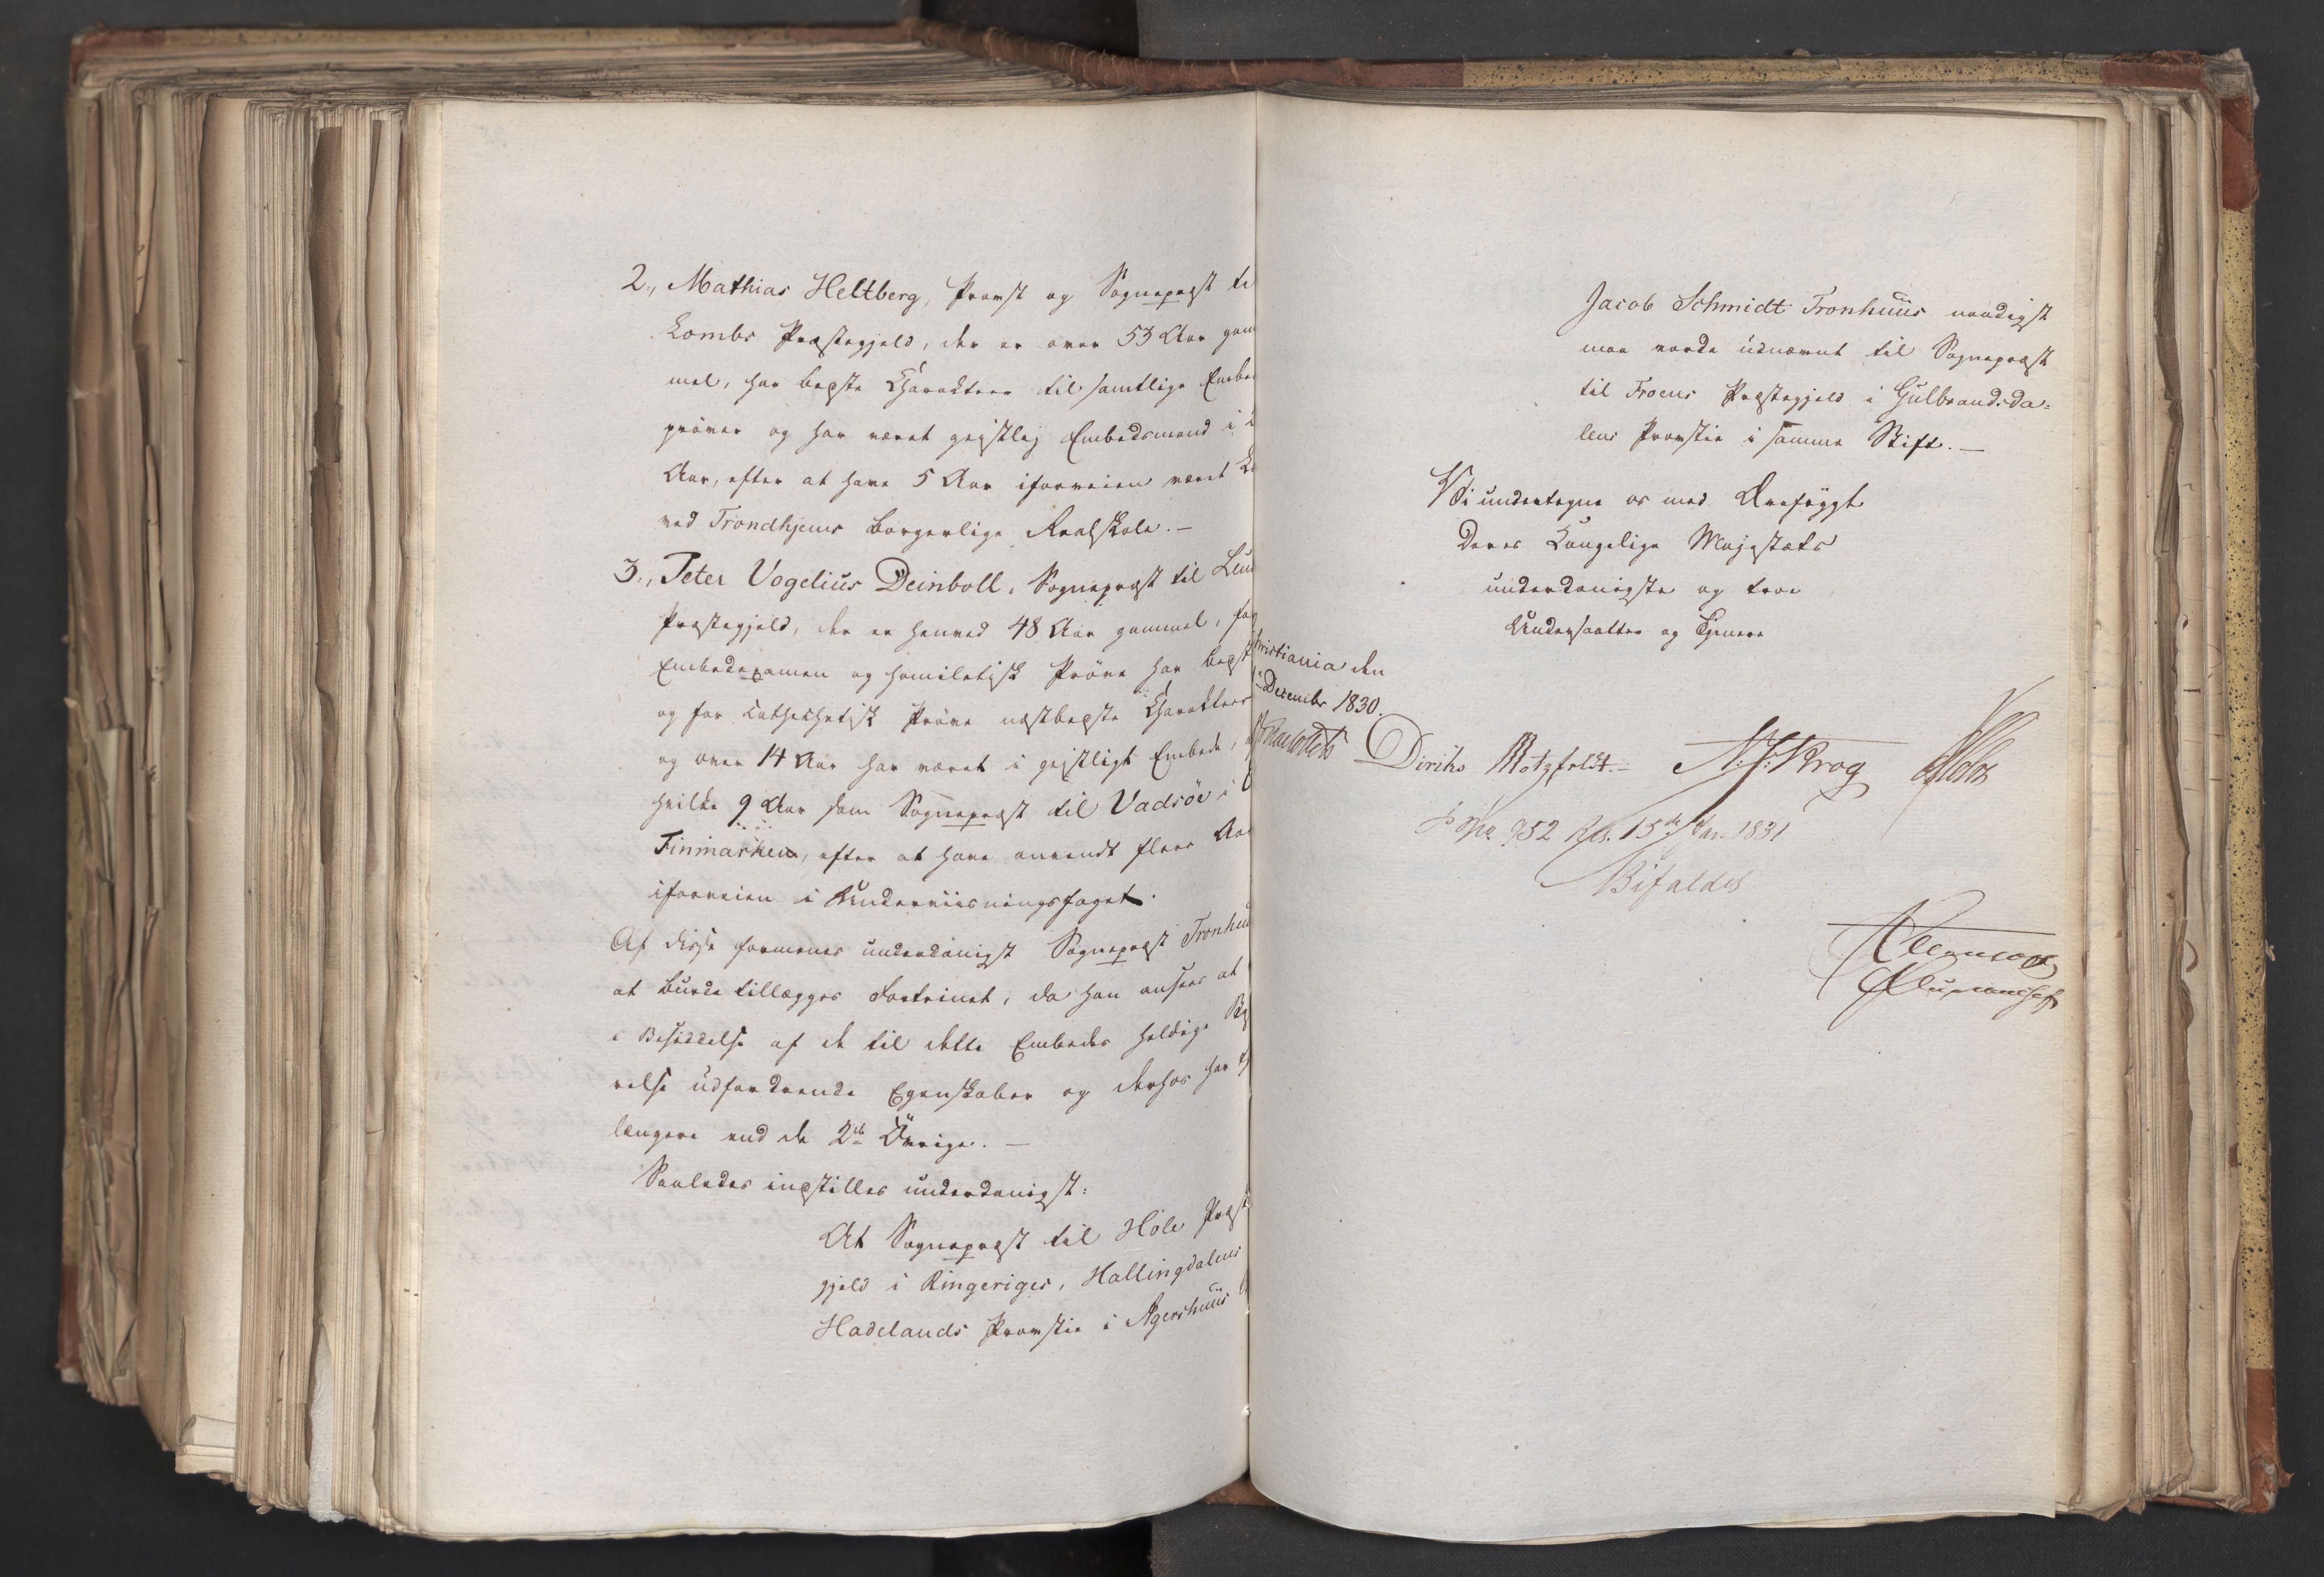 2., Mathias Heltberg, Provst og Sognepræst ti
Lombs Præstegjeld, der er over 53 Aar gam
mel, har bedste Charakteer til samtlige Embe
prøver og har været geistlig Embedsmand i 2
Aar, efter at have 5 Aar iforveien været
ved Trondhjems borgerlige Realskole. —
3., Peter Vogelius Deinboll, Sognepræst til
Præstegjeld, der er henved 48 Aar gammel, for
Embedsexamen og homiletisk Prøve har bedst
og for Cathechetisk Prøve næstbedste Charakteer
og over 14 Aar har været i geistligt Embede,
hvilke 9 Aar som Sognepræst til Vadsöe i
Finmarken, efter at have anvendt flere Aar
iforveien i Underviisningsfaget.
Af disse formenes underdanigst Sognepræst Tronhuu
at burde tillægges Fortrinet, da han ansees at
i Besiddelse af de til dette Embedes heldige
relse udfordrende Egenskaber og derhos har
længere end de 2de Øvrige. —
Saaledes indstilles underdanigst:
At Sognepræst til Hole Præst
gjeld i Ringeriges, Hallingdalens
Hadelands Provstie i Agershuus
Jacob Schmidt Tronhuus naadigst
maa vorde udnævnt til Sognepræst
til Froens Præstegjeld i Gulbrandsda-
lens Provstie i samme Stift. —
Vi undertegne os med Ærefrygt
Deres Kongelige Majestæts
underdanigste og troe
Undersaatter og Tjenere
ristiania den
December 1830.
Diriks Motzfeldt. N. J. Krog
952 Res. 15de Jan. 1831
Bifaldes